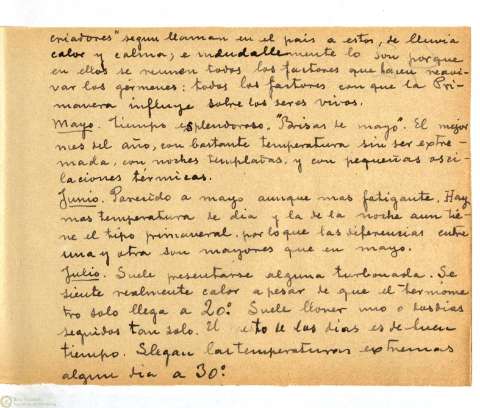 criadores" segun llaman en el pais a estos, de lluvia
calor y calma; e indudablemente lo son porque
en ellos se reunen todos los factores que hacen reavi-
var los germenes: todos los factores con que la Pri-
mavera influye sobre los seres vivos.
Mayo. Tiempo esplendoroso. "Brisas de mayo". El mejor
mes del año, con bastante temperatura sin ser extre-
mada, con noches templadas, y con pequeñas osci-
laciones termicas.
Junio. Parecido a mayo aunque mas fatigante. Hay
mas temperatura de dia y la de la noche aun tie-
ne el tipo primaveral, por lo que las diferencias entre
una y otra son mayores que en mayo.
Julio. Suele presentarse alguna turbonada. Se
siente realmente calor a pesar de que el termome
tro solo llega a 20º. Suele llover uno o dos dias
seguidos tan solo. El resto de los dias es de buen
tiempo. Llegan las temperaturas extremas
algun dia a 30º.